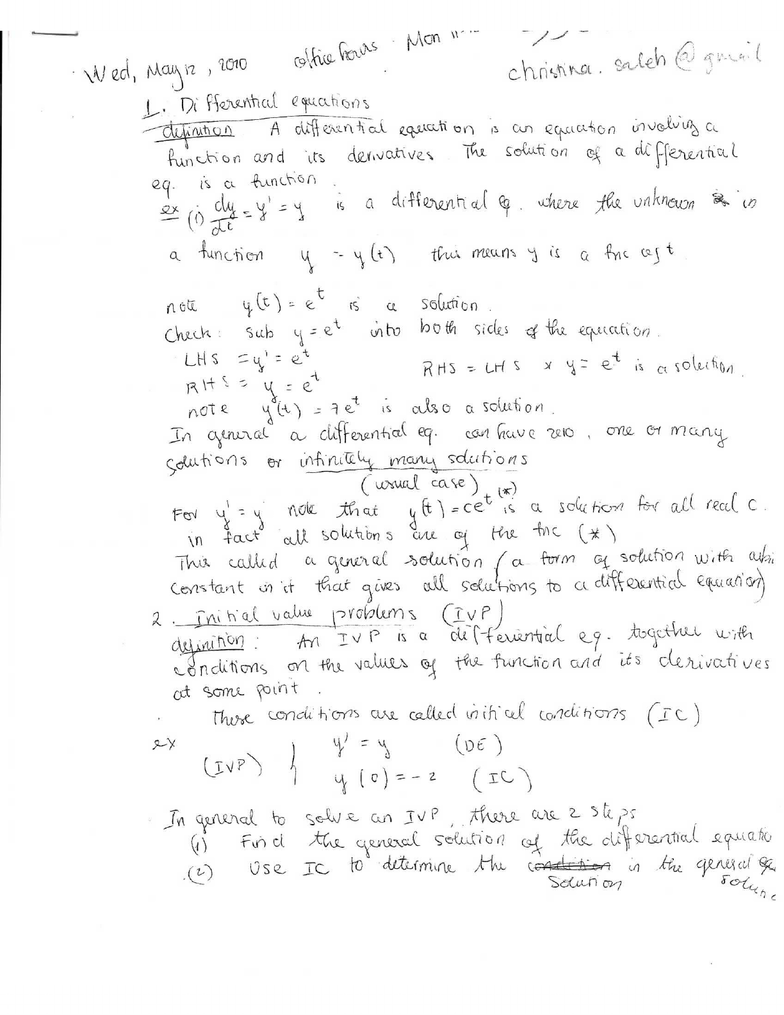 Wed, May 12, 2010 office hours Mon
christina.saleh@gmail
1. Differential equations
definition A differential equation is an equation involving a
function and its derivatives The solution of a differential
eq. is a function
ex (i) dy/dt = y' = y is a differential eq. where the unknown is
a function y - y(t) this means y is a fnc of t
note y(t) = e^t is a solution.
Check: sub y = e^t into both sides of the equation.
LHS = y' = e^t
RHS = y = e^t RHS = LHS y = e^t is a solution.
note y(t) = 7e^t is also a solution.
In general a differential eq. can have zero, one or many
solutions or infinitely many solutions
(usual case)
For y' = y note that y(t) = ce^t (*) is a solution for all real c.
in fact all solutions are of the fnc (*)
This called a general solution (a form of solution with
constant in it that gives all solutions to a differential equation)
2. Initial value problems (IVP)
definition: An IVP is a differential eq. together with
conditions on the values of the function and its derivatives
at some point.
These conditions are called initical conditions (IC)
ex
(IVP) { y' = y (DE)
y(0) = -2 (IC)
In general to solve an IVP, there are 2 steps
(1) Find the general solution of the differential equatio
(2) Use IC to determine the condition in the general
Solution solun